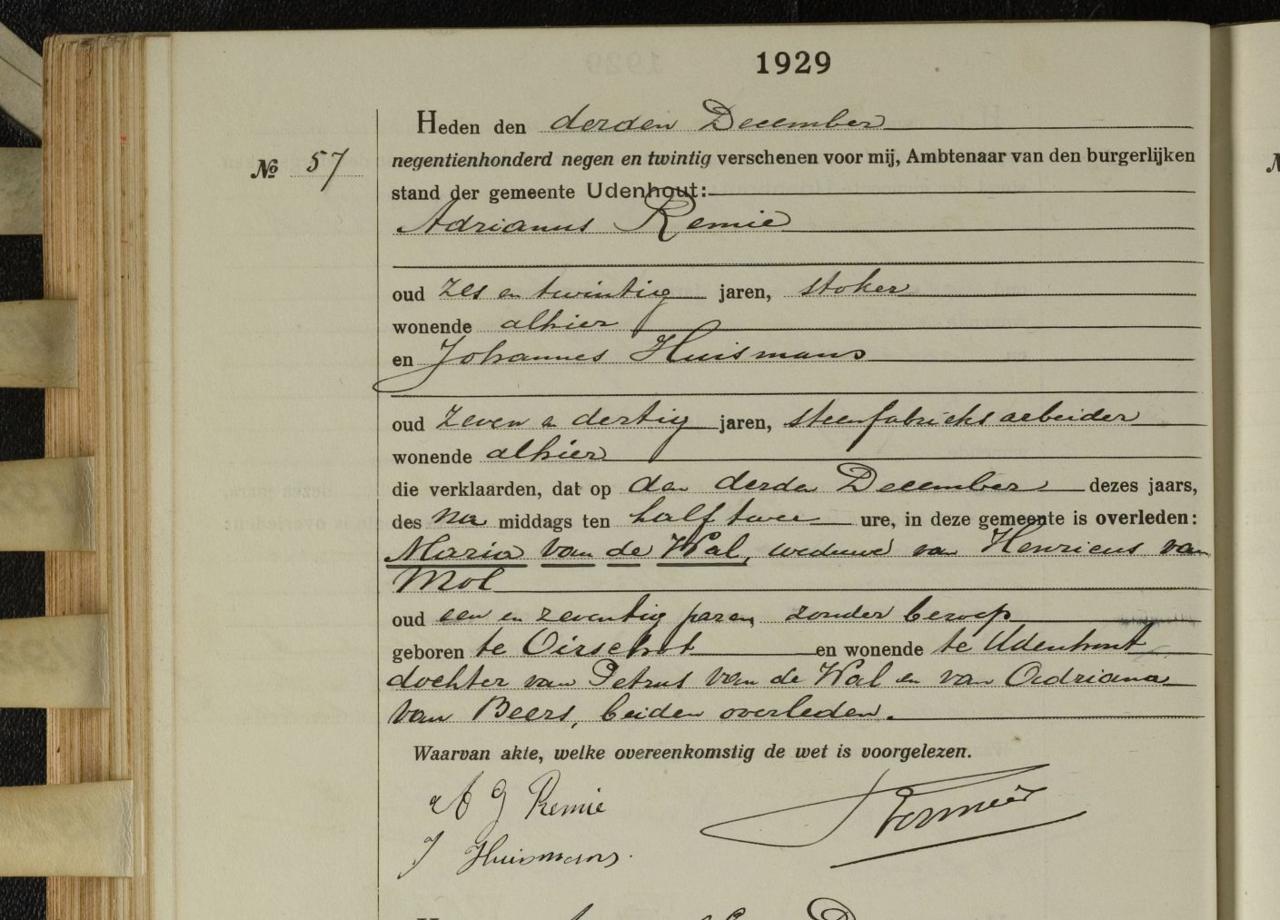 1929
Heden den derden December
№ 57
negentienhonderd negen en twintig verschenen voor mij, Ambtenaar van den burgerlijken
stand der gemeente Udenhout:
Adrianus Remie
oud zes en twintig jaren, stoker
wonende alhier
en Johannes Huismans
oud zeven en dertig jaren, steenfabrieksarbeider
wonende alhier
die verklaarden, dat op den derden December dezes jaars,
des na middags ten half twee ure, in deze gemeente is overleden:
Maria van de Wal, weduwe van Henricus van
Mol
oud een en zeventig jaren, zonder beroep
geboren te Oirschot en wonende te Udenhout
dochter van Petrus van de Wal en van Adriana
van Beers, beiden overleden.
Waarvan akte, welke overeenkomstig de wet is voorgelezen.
A G Remie
Vermeer
J Huismans.